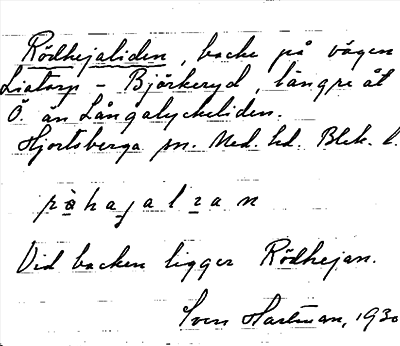 Rödhejaliden, backe på vägen
Liatorp – Björkeryd, längre åt
Ö. än Långalyckeliden.
Hjortsberga sn. Med. hd. Blek. l.
Vid backen ligger Rödhejan.
Sven Hartman, 1930